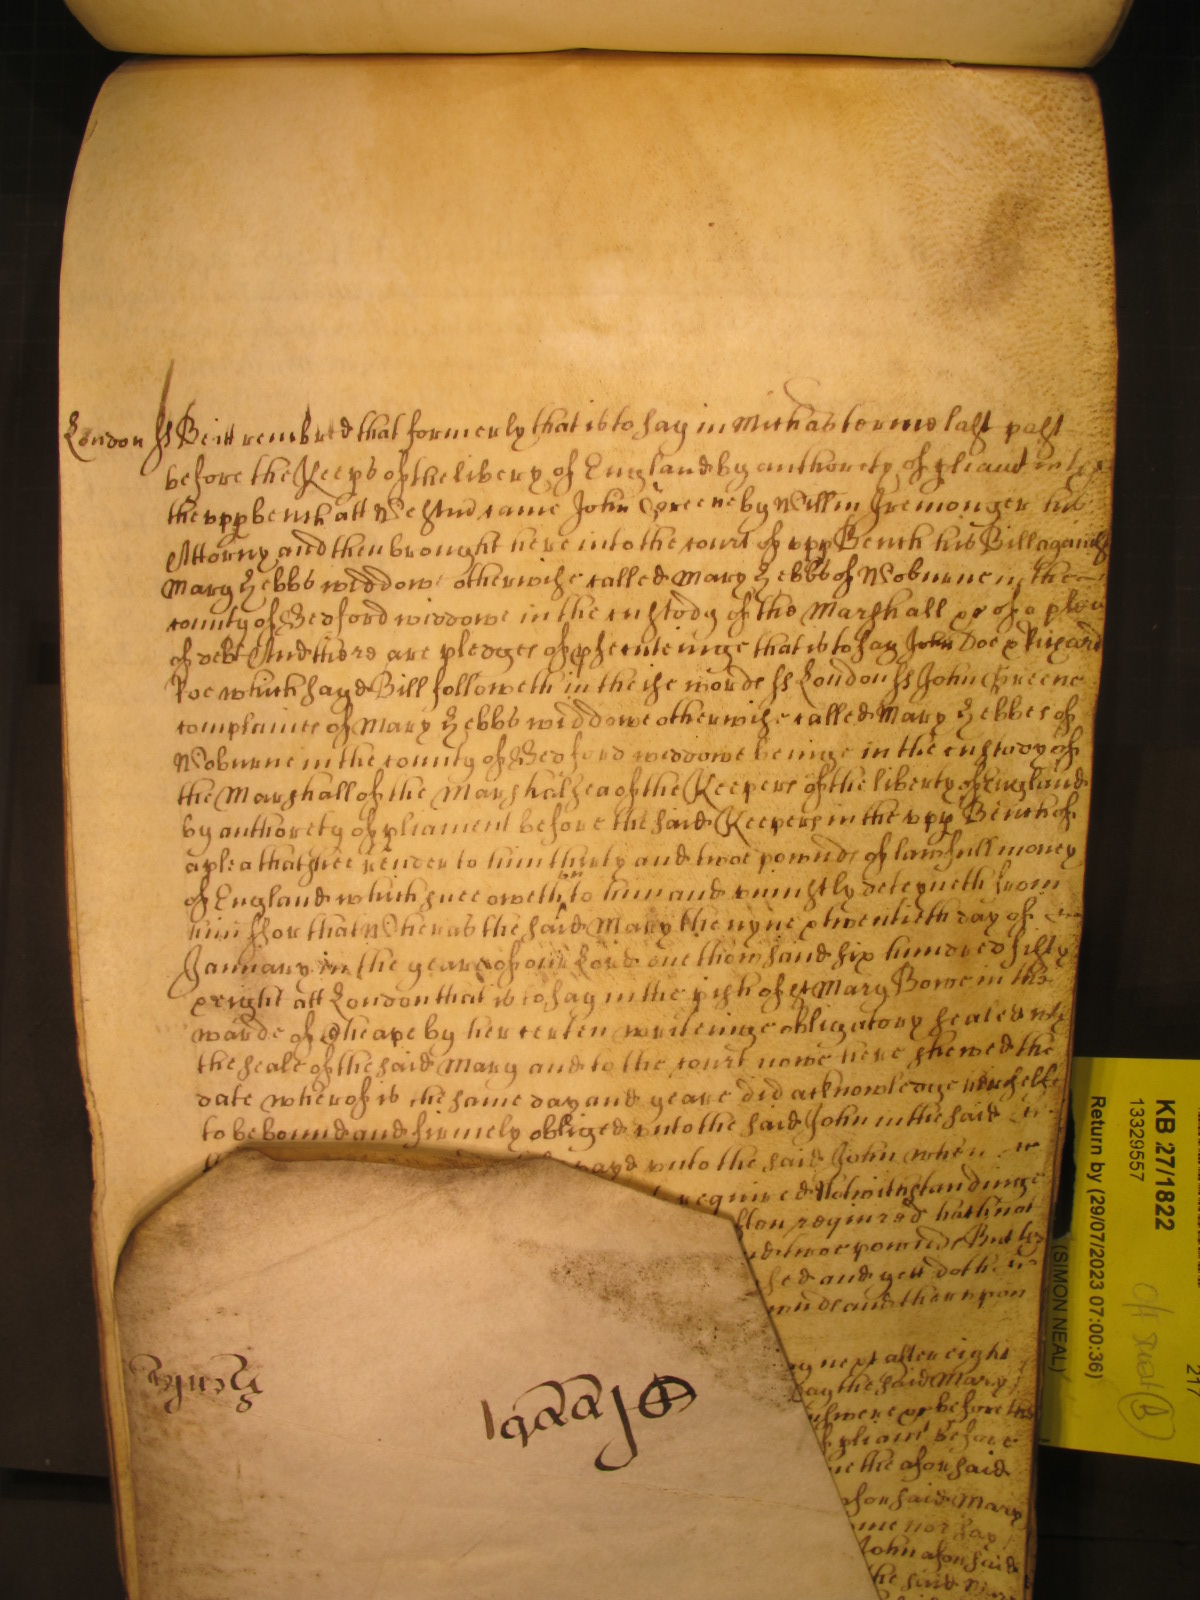 London ss Be itt remembred that formerly that is to say in Michas terme last past
before the Keeps of the liberty of England by authorety of pliamt in
the upp bench att Westm came John Greene by Willm Iremonger his
Attorny and then brought here into the court of upp Bench his Bill against
Mary Hebbs widdowe otherwise called Mary Hebbs of Woburne in the
county of Bedford widdowe in the custody of the Marshall &c of a plea
of debt And there are pledges of psecuteinge that is to say John Doe & Richard
Roe which sayd Bill followeth in theise words ss London ss John Greene
complaines of Mary Hebbs widdowe otherwise called Mary Hebbes of
Woburne in the county of Bedford widdowe beinge in the custody of
the Marshall of the Marshalsea of the Keepers of the liberty of England
by authorety of pliament before the said Keepers in the upp Bench of
a plea that shee render to him thirty and twoe pownds of lawfull money
of England which shee oweth to him and uniustly deteyneth from
him ffor that Wheras the said Mary the nyne & twentieth day of
January in the yeare of our Lord one thowsand six hundred fifty
& eight att London that is to say in the pish of St Mary Bowe in the
warde of Cheape by her certen writeinge obligatory sealed wth
the seale of the said Mary and to the court nowe here shewed the
date wherof is the same day and yeare did acknowledge herselfe
to be bound and firmely obliged unto the said John in the said
payd unto the said John when
required Notwithstandinge
required hath not
twoe pownds But
and yett doth
and therupon
next after eight
the said Mary
before the
pliamt before
the aforsaid
aforsaid Mary
nor say
John aforsaid
the said Mary
KB 27/1822
13329557
Return by (29/07/2023 07:00:36)
(SIMON NEAL)
217